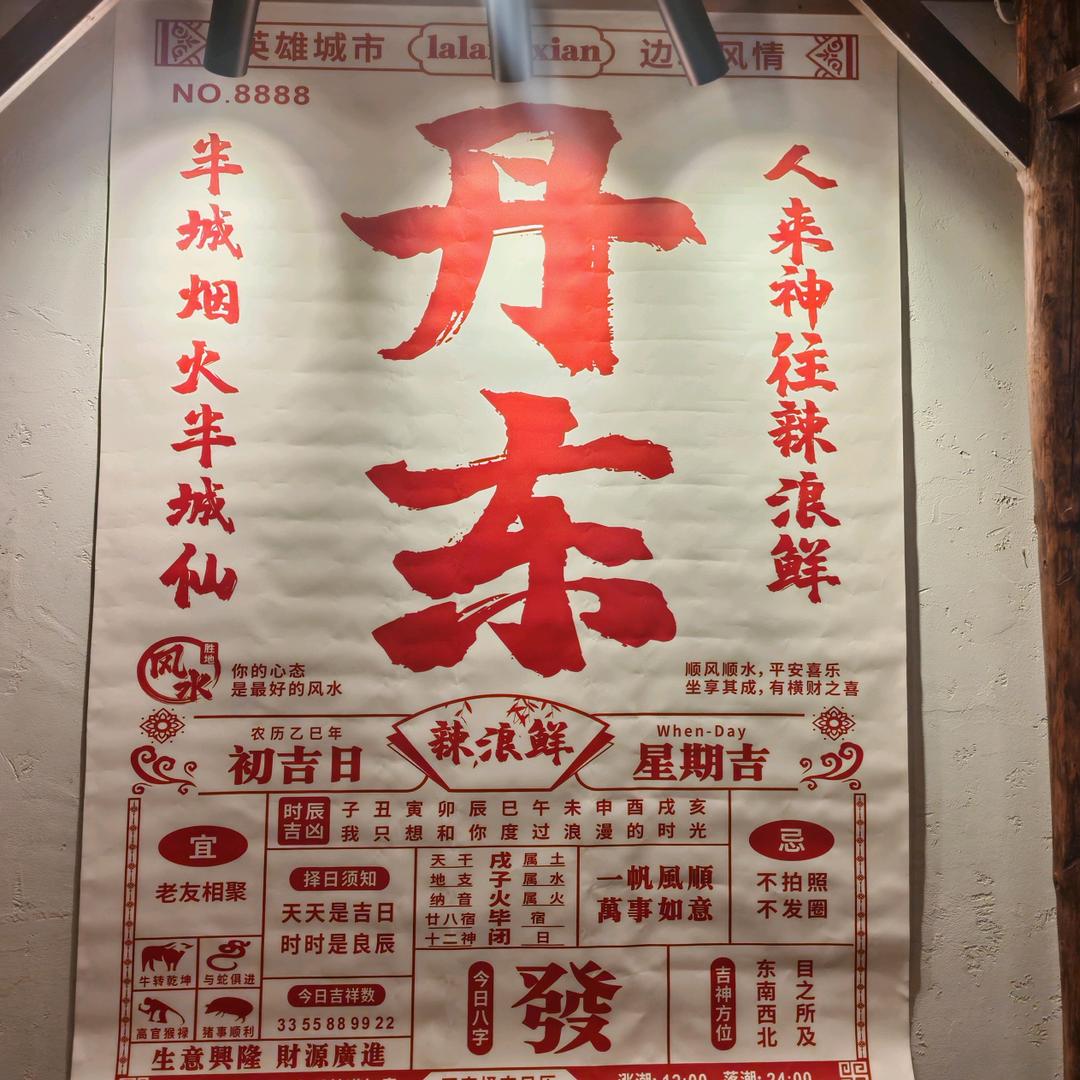 英雄城市
边 风情
NO.8888
丹东
半城烟火半城仙
人来神往辣浪鲜
风水
胜地
你的心态
是最好的风水
顺风顺水,平安喜乐
坐享其成,有横财之喜
农历乙巳年
初吉日
辣浪鲜
When-Day
星期吉
宜
老友相聚
时辰吉凶
子丑寅卯辰巳午未申酉戌亥
我只想和你度过浪漫的时光
忌
不拍照
不发圈
择日须知
天天是吉日
时时是良辰
天干 戌 属土
地支 子 属水
纳音 火 属火
廿八宿 毕 宿
十二神 闭 日
一帆風順
萬事如意
牛转乾坤
与蛇俱进
高官猴禄
猪事顺利
今日吉祥数
33 55 88 99 22
今日八字
發
吉神方位
东南西北
目之所及
生意興隆 財源廣進
涨潮:12:00 落潮:24:00